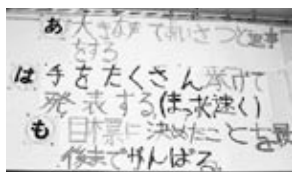 あ 大きな声であいさつと返事
をする
は 手をたくさん挙げて
発表する(まっ次速く)
も 目標に決めたことを最
後までがんばる。